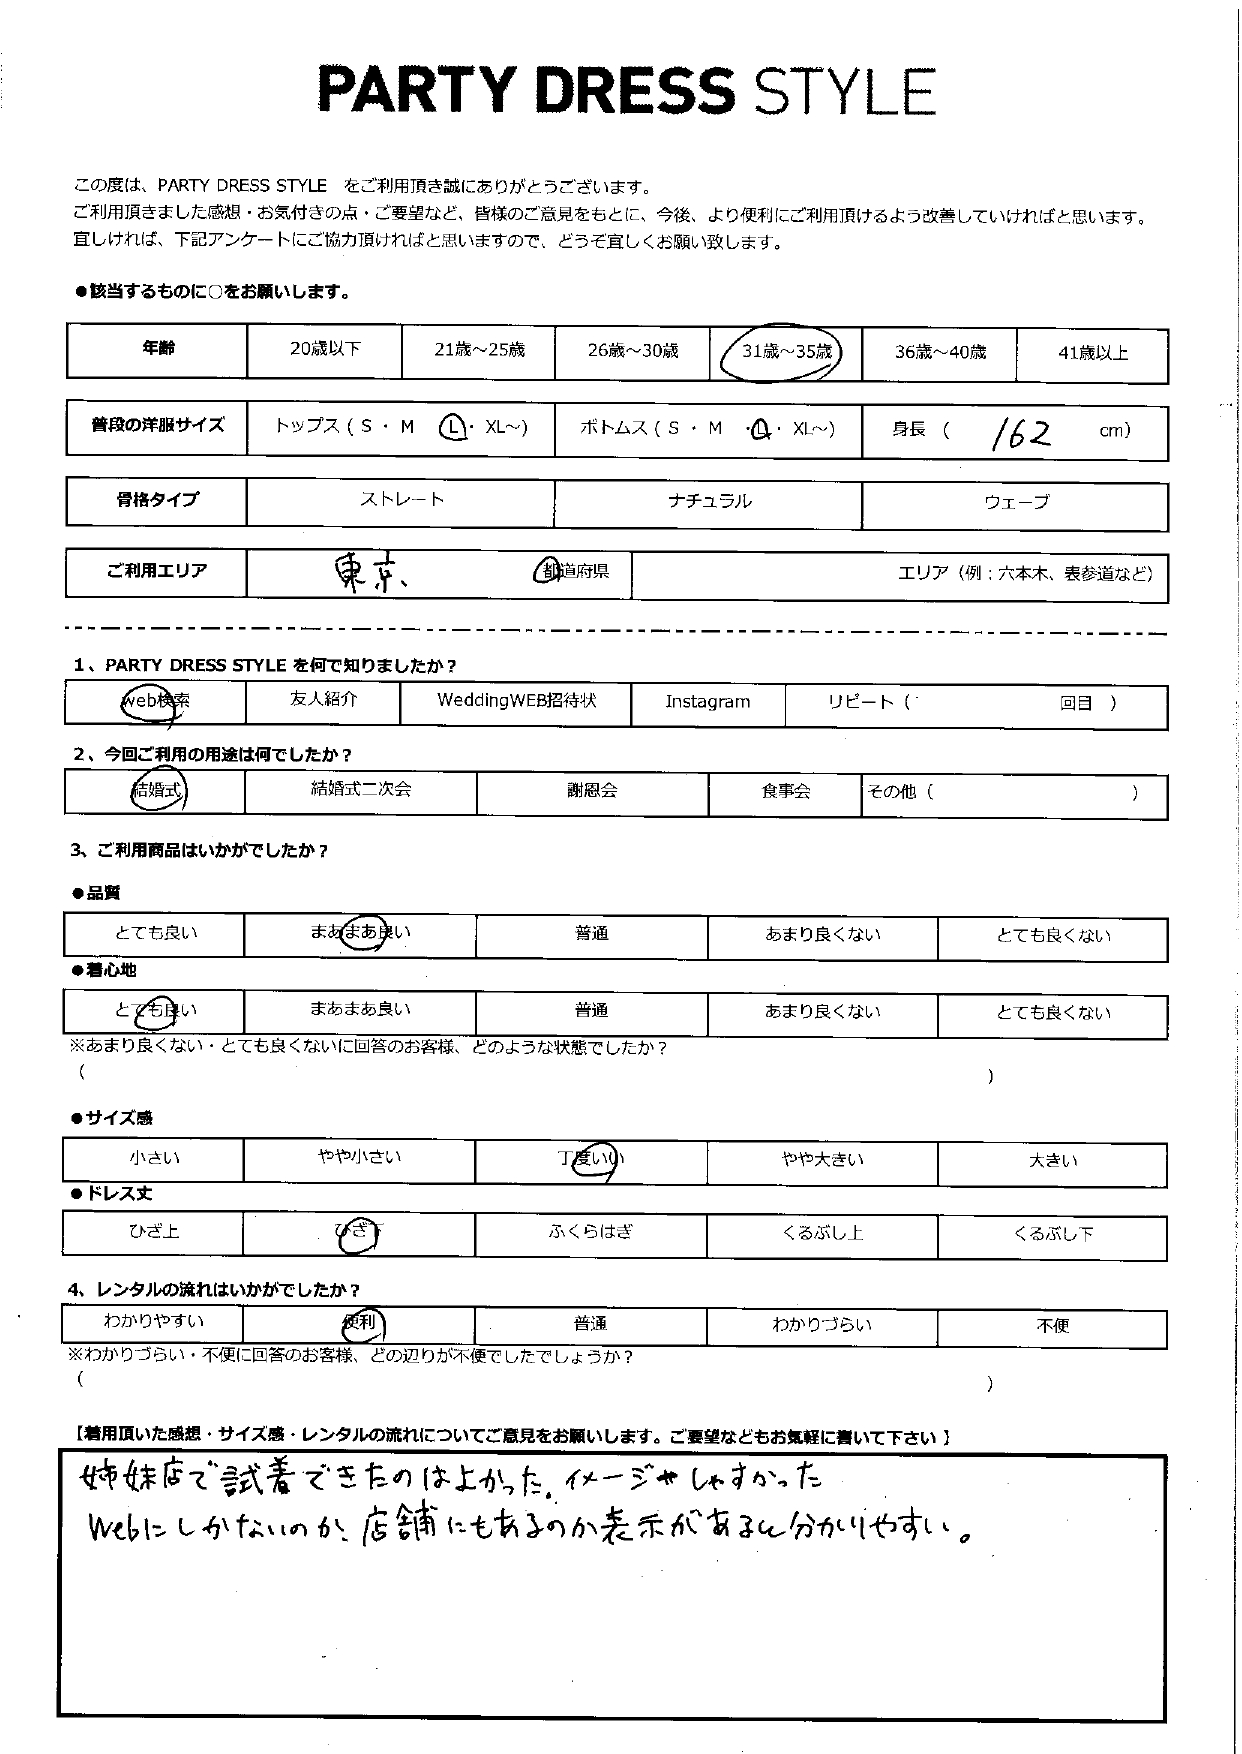 PARTY DRESS STYLE
この度は、PARTY DRESS STYLE をご利用頂き誠にありがとうございます。
ご利用頂きました感想・お気付きの点・ご要望など、皆様のご意見をもとに、今後、より便利にご利用頂けるよう改善していければと思います。
宜しければ、下記アンケートにご協力頂ければと思いますので、どうぞ宜しくお願い致します。
●該当するものに○をお願いします。
年齢 20歳以下 21歳～25歳 26歳～30歳 31歳～35歳 36歳～40歳 41歳以上
普段の洋服サイズ トップス ( S ・ M L ・ XL～) ボトムス ( S ・ M ・L ・ XL～) 身長 ( 162 cm)
骨格タイプ ストレート ナチュラル ウェーブ
ご利用エリア 東京、 都道府県 エリア（例：六本木、表参道など）
1、PARTY DRESS STYLE を何で知りましたか？
web検索 友人紹介 WeddingWEB招待状 Instagram リピート ( 回目 )
2、今回ご利用の用途は何でしたか？
結婚式 結婚式二次会 謝恩会 食事会 その他 ( )
3、ご利用商品はいかがでしたか？
●品質
とても良い まあまあ良い 普通 あまり良くない とても良くない
●着心地
とても良い まあまあ良い 普通 あまり良くない とても良くない
※あまり良くない・とても良くないに回答のお客様、どのような状態でしたか？
( )
●サイズ感
小さい やや小さい 丁度いい やや大きい 大きい
●ドレス丈
ひざ上 ひざ下 ふくらはぎ くるぶし上 くるぶし下
4、レンタルの流れはいかがでしたか？
わかりやすい 便利 普通 わかりづらい 不便
※わかりづらい・不便に回答のお客様、どの辺りが不便でしたでしょうか？
( )
【着用頂いた感想・サイズ感・レンタルの流れについてご意見をお願いします。ご要望などもお気軽に書いて下さい】
姉妹店で試着できたのはよかった。イメージがしやすかった
Webにしかないのか、店舗にもあるのか表示があると分かりやすい。